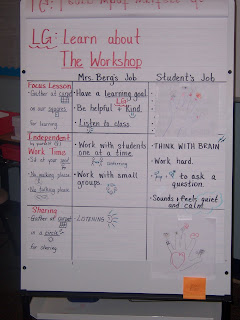 LG: Learn about
The Workshop
Mrs. Berg's Job
Student's Job
Focus Lesson
• Gather at carpet
on our squares
for learning
• Have a learning goal
LG
• Be helpful + Kind
• Listen to class
Independent
Work Time
• Sit at your spot
• No making places
• No talking
• Work with students
one at a time
• Work with small
groups
• THINK WITH BRAIN
Work hard.
to ask a
question.
• Sounds + feels quiet
and calm
Sharing
• Gather at carpet
in a circle
for sharing
• LISTENING